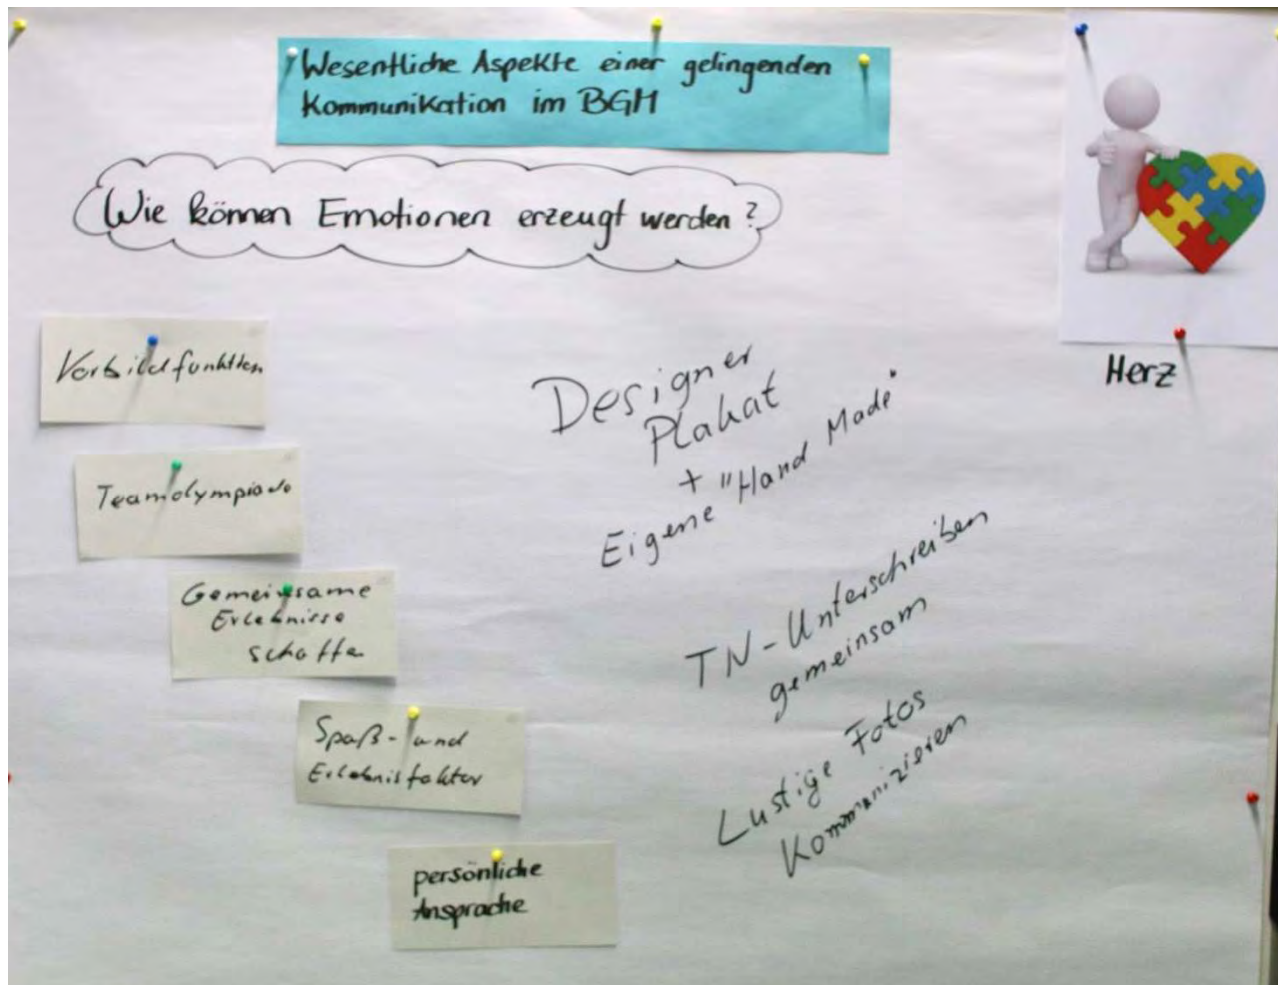 Wesentliche Aspekte einer gelingenden
Kommunikation im BGM
Wie können Emotionen erzeugt werden?
Herz
Vorbildfunktion
Teamolympiade
Gemeinsame
Erlebnisse
schaffe
Spaß- und
Erlebnisfaktor
persönliche
Ansprache
Designer
Plakat
+ "Hand Made"
Eigene
TN-Unterschreiben
gemeinsam
Lustige Fotos
Kommunizieren